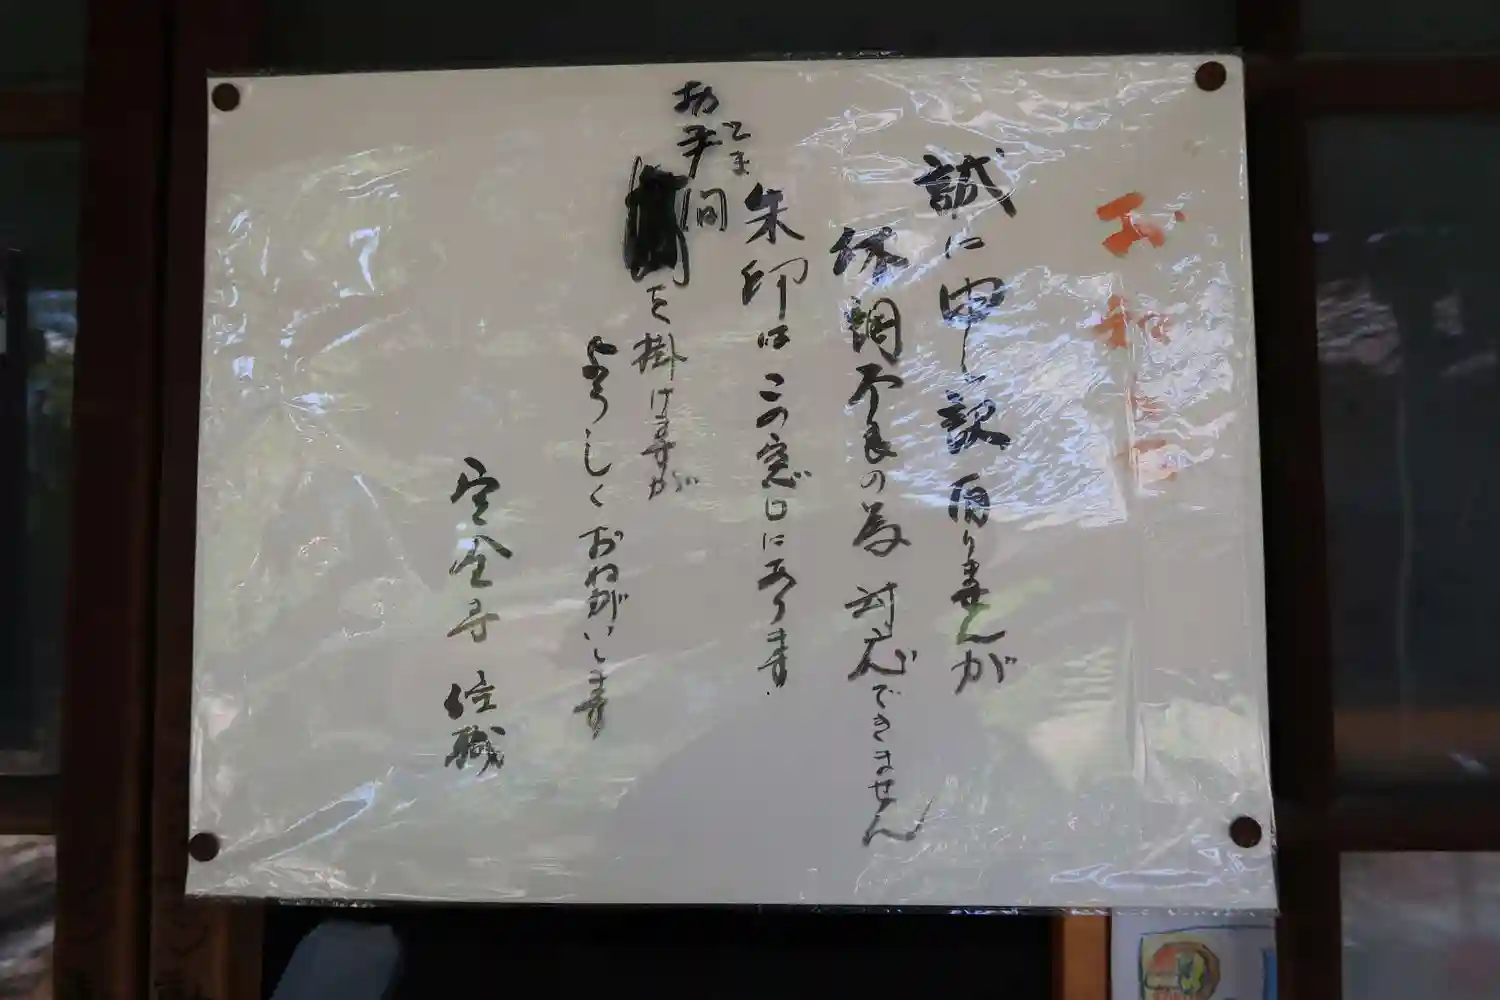 お知らせ
誠に申し訳有りませんが
体調不良の為対応できません
朱印はこの窓口にあります.
お手間
てま
を掛けますが
よろしくおねがいします
住職